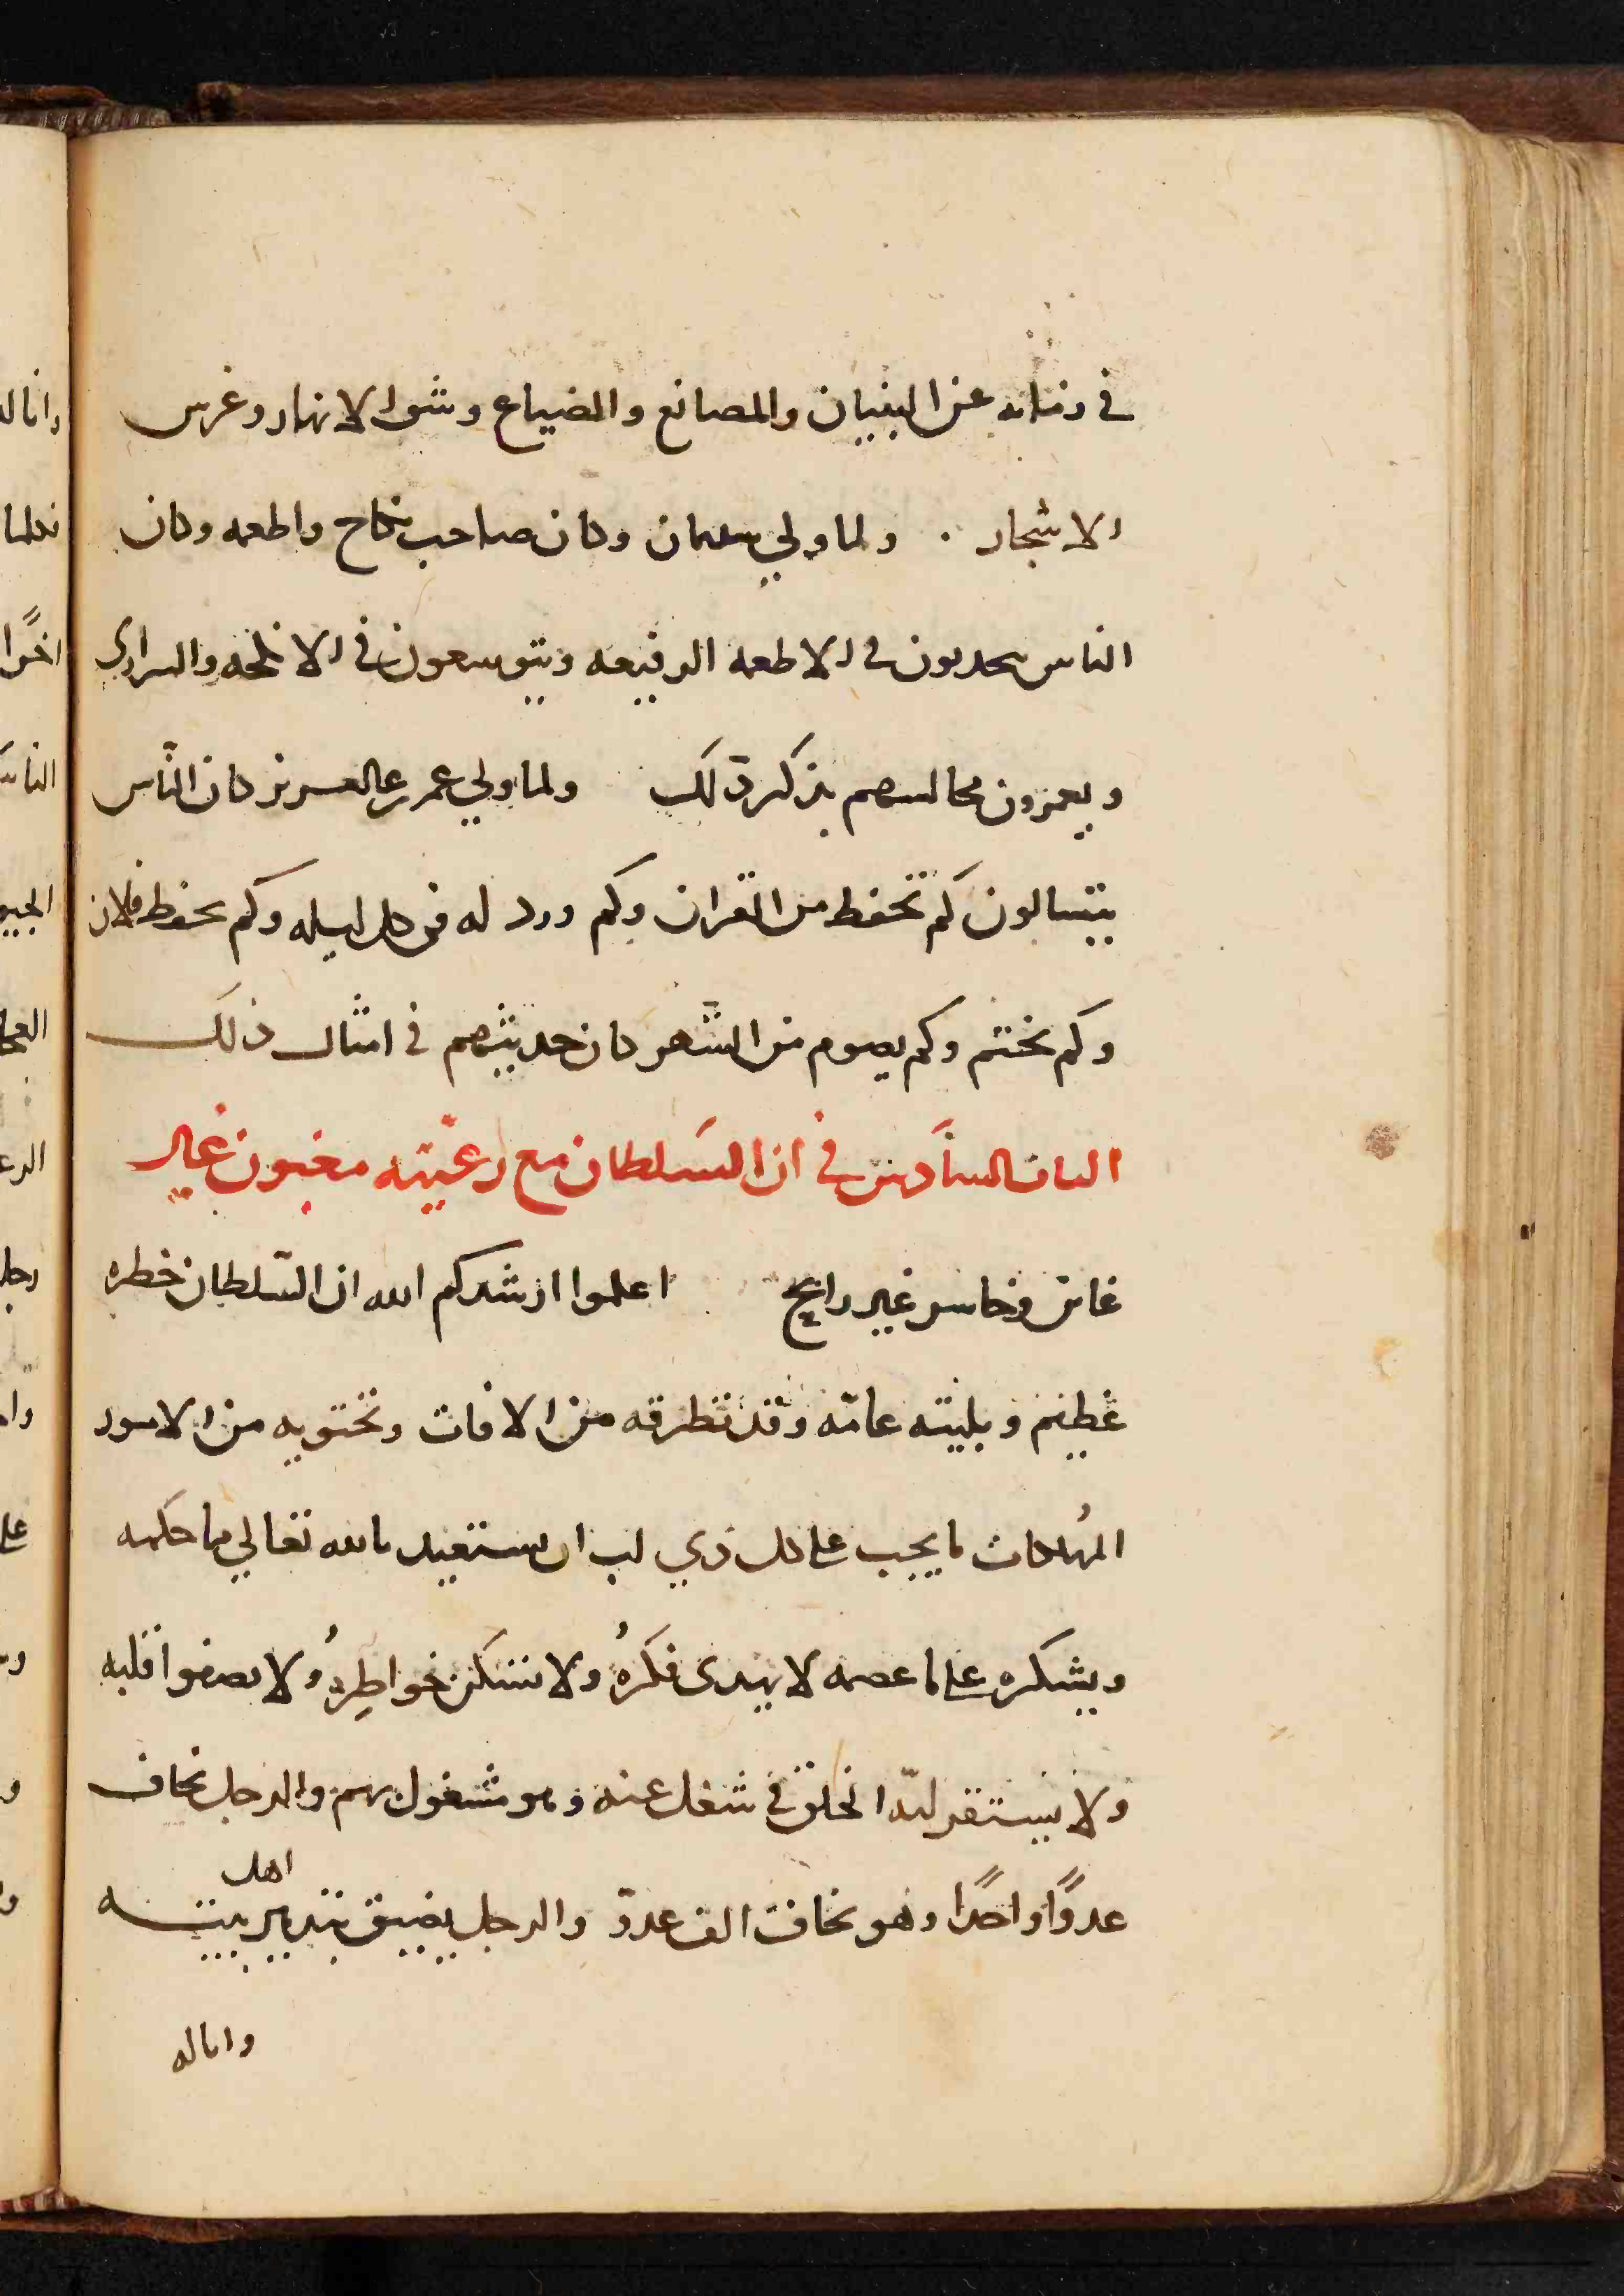 في زمانه عن البنيان والمصانع والضياع وشق الانهار وغرس
الاشجار . ولما ولي سليمان وكان صاحب نكاح واطعمه وكان
الناس يتحدثون في الاطعمه الرفيعه ويتوسعون في الانكحه والسراري
ويعمرون مجالسهم بذكر ذلك ولما ولي عمر بن عبد العزيز كان النّاس
يتسالون كم تحفظ من القران وكم ورد له في كل ليله وكم يحفظ فلان
وكم يختم وكم يصوم من الشهر كان حديثهم في امثال ذلك
الباب السادس في ان السلطان مع رعيّته مغبون غير
غابن وخاسر غير رابح اعلموا ارشدكم الله ان السّلطان خطره
عظيم وبليته عامّه وقد تطرقه من الافات وتحتويه من الامور
المُهلكات ما يجب على كل ذي لب ان يستعيد بالله تعالي مما حكمه
ويشكره على ما عصمه لا يهدى فكرهُ ولا تسكن خواطِرهُ ولا يصفوا قلبه
ولا يستقر لبّه الخلق في شغل عنه وهو مشغول بهم والرجل يخاف
عدوًّا واحدًا وهو يخاف الف عدوّ والرجل يضيق بتدبير اهل بيته
واناله